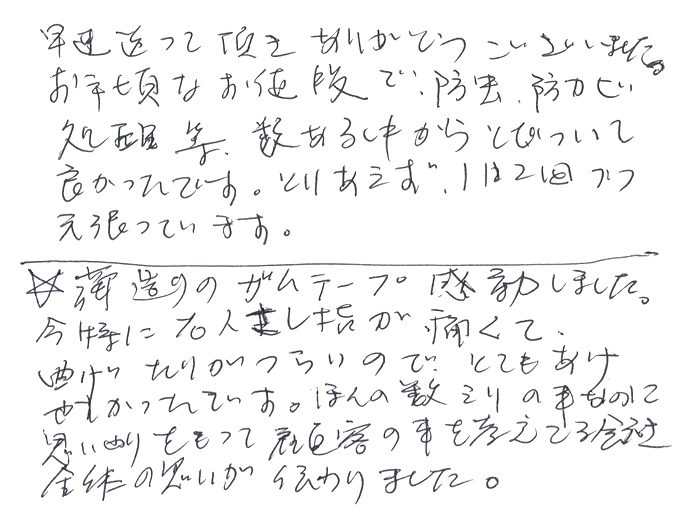 早速送って頂きありがとうございました。
お手頃なお値段で、防虫、防カビ
処理等、数ある中からとびついて
良かったです。とりあえず、1日2回づつ
頑張っています。
☆ 荷造りのガムテープ感動しました。
今特に 人差し指が痛くて、
曲げたりがつらいので、とてもあけ
やすかったです。ほんの数ミリの事なのに
思いやりをもって顧客の事を考えてる会社
全体の思いが伝わりました。